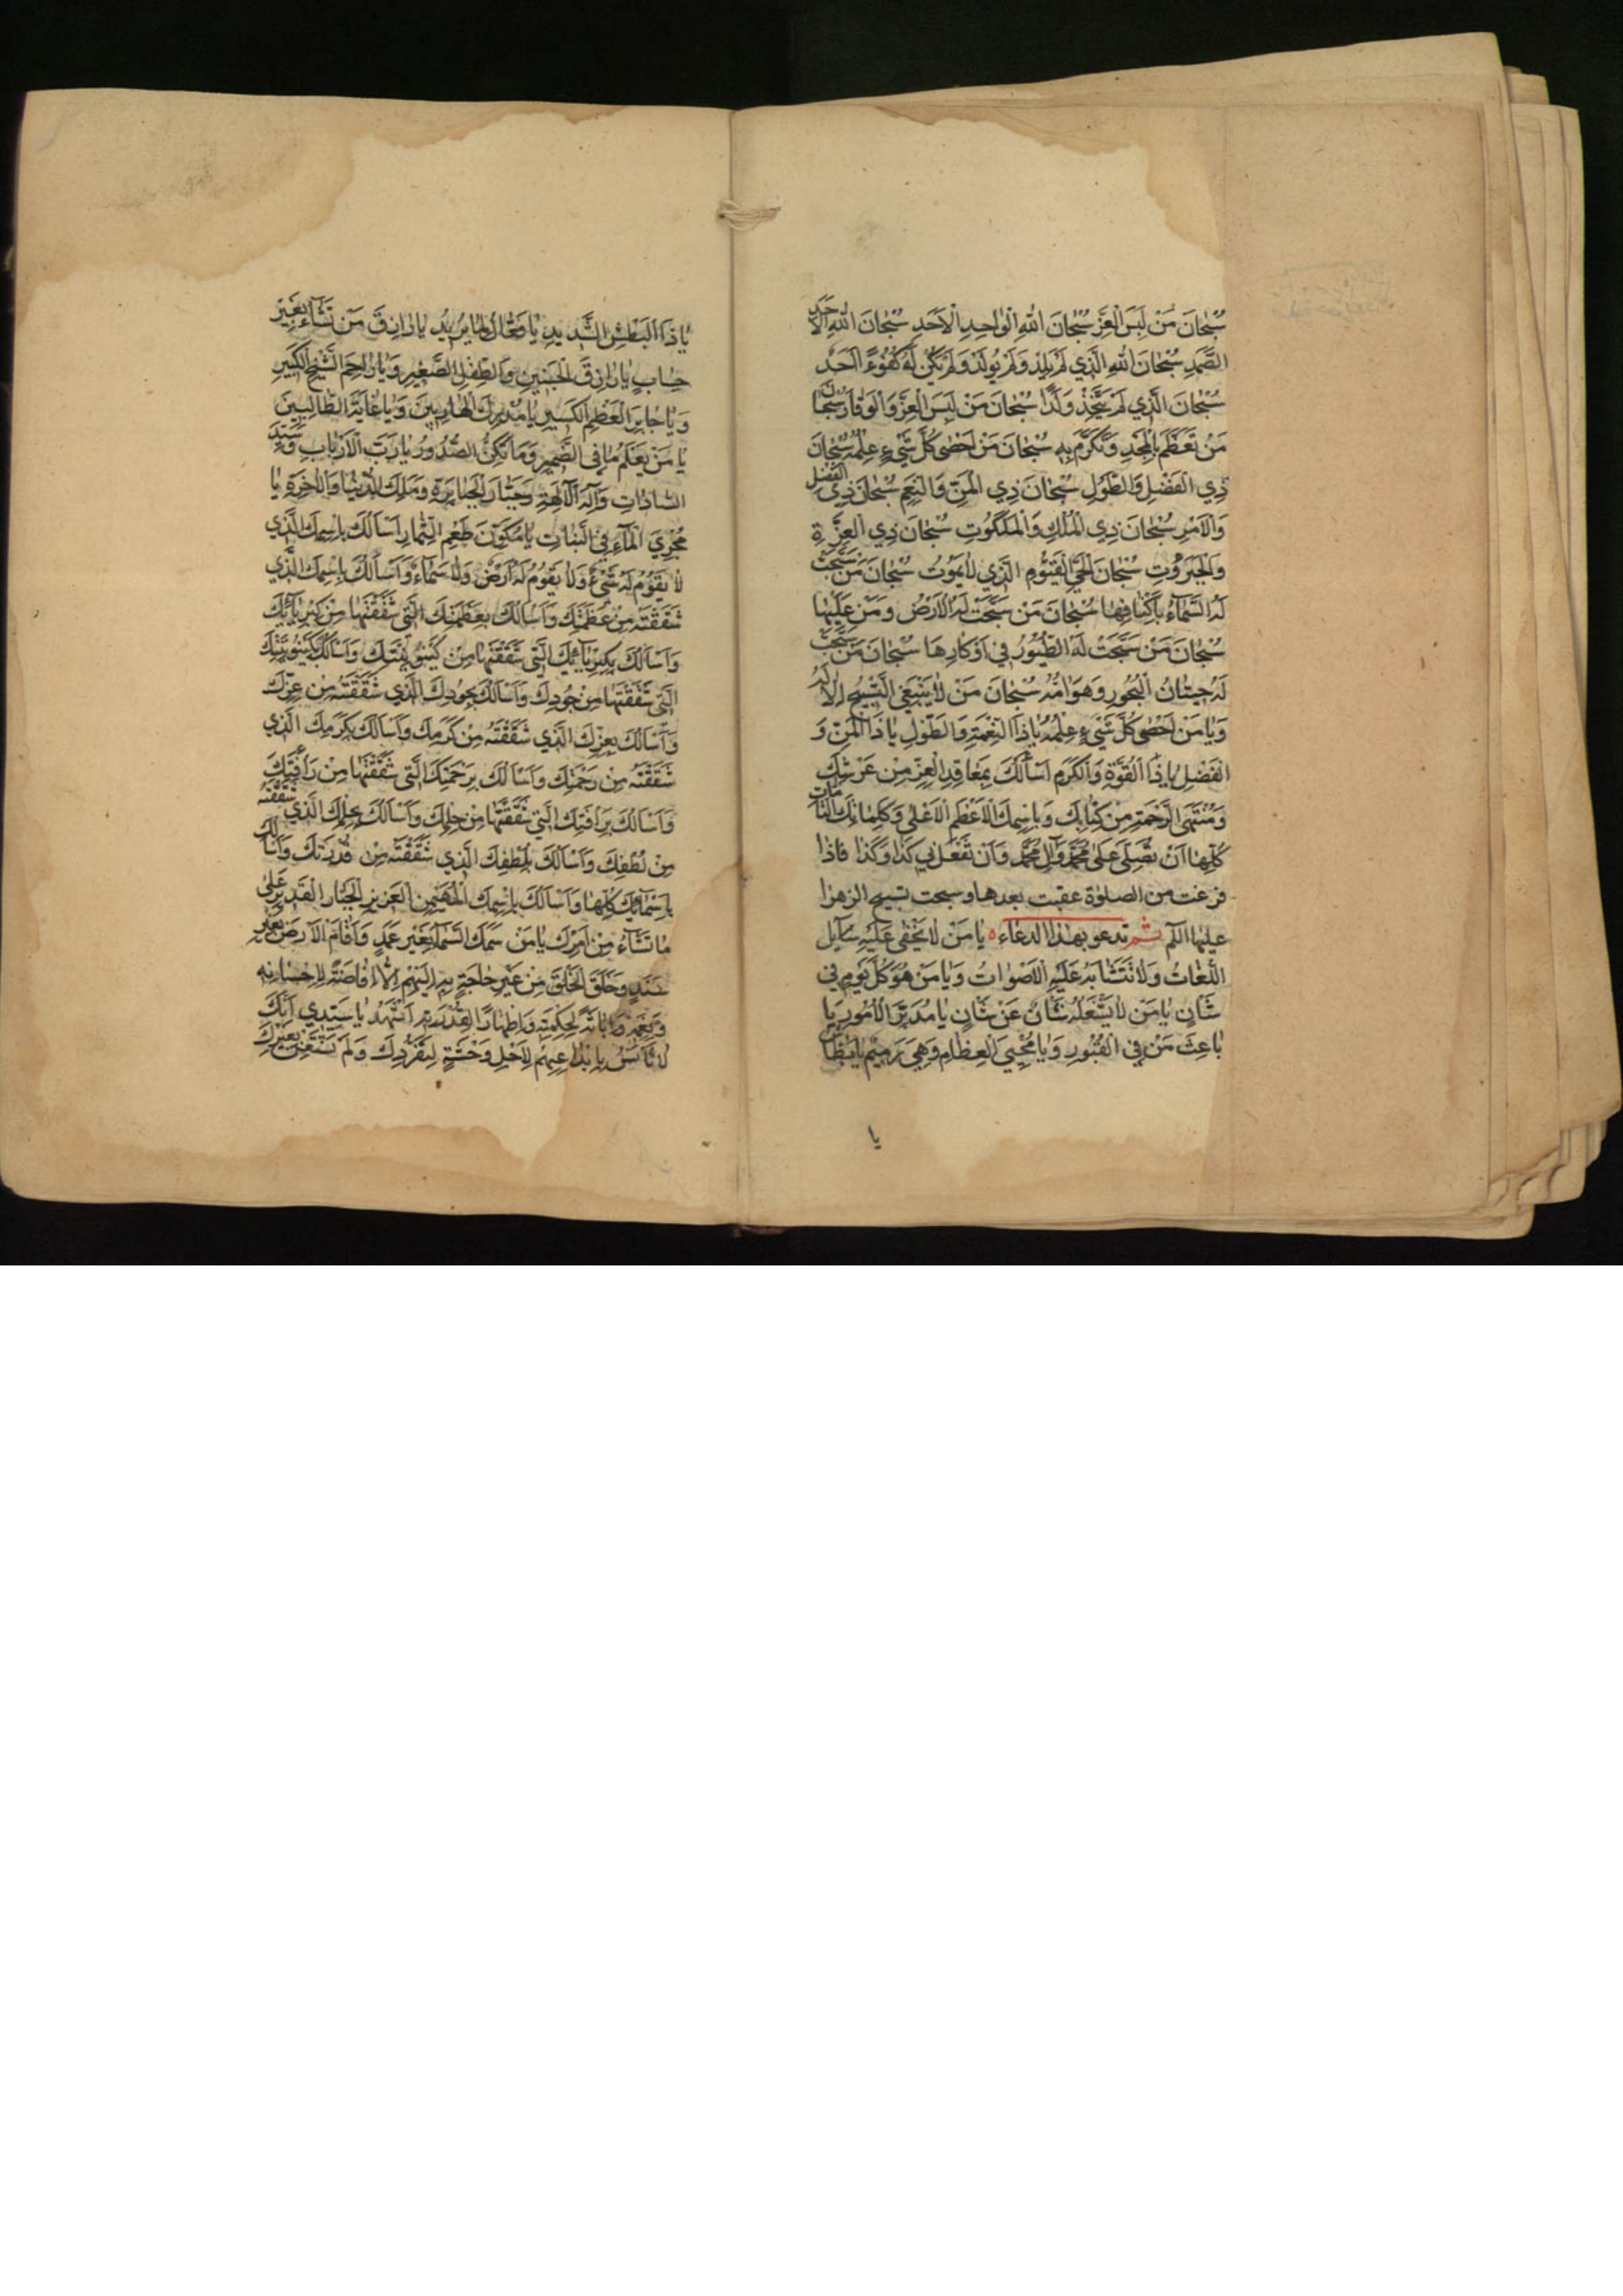 سُبْحَانَ مَنْ لَبِسَ الْعِزَّ سُبْحَانَ اللهِ الْوَاحِدِ الْاَحَدِ سُبْحَانَ اللهِ الْاَحَدِ
الصَّمَدِ سُبْحَانَ اللهِ الَّذِي لَمْ يَلِدْ وَلَمْ يُولَدْ وَلَمْ يَكُنْ لَهُ كُفُوًا اَحَدٌ
سُبْحَانَ الَّذِي لَمْ يَتَّخِذْ وَلَدًا سُبْحَانَ مَنْ لَبِسَ الْعِزَّ وَالْوَقَارَ سُبْحَانَ
مَنْ تَعَظَّمَ بِالْمَجْدِ وَتَكَرَّمَ بِهِ سُبْحَانَ مَنْ اَحْصٰى كُلَّ شَيْءٍ عِلْمُهُ سُبْحَانَ
ذِي الْفَضْلِ وَالطَّوْلِ سُبْحَانَ ذِي الْمَنِّ وَالنِّعَمِ سُبْحَانَ ذِي الْفَضْلِ
وَالْاَمْرِ سُبْحَانَ ذِي الْمُلْكِ وَالْمَلَكُوتِ سُبْحَانَ ذِي الْعِزَّةِ
وَالْجَبَرُوتِ سُبْحَانَ الْحَيِّ الْقَيُّومِ الَّذِي لَا يَمُوتُ سُبْحَانَ مَنْ سَبَّحَتْ
لَهُ السَّمَاءُ بِاَكْنَافِهَا سُبْحَانَ مَنْ سَبَّحَتْ لَهُ الْاَرْضُ وَمَنْ عَلَيْهَا
سُبْحَانَ مَنْ سَبَّحَتْ لَهُ الطُّيُورُ فِي اَوْكَارِهَا سُبْحَانَ مَنْ سَبَّحَتْ
لَهُ حِيتَانُ الْبُحُورِ وَهَوَامُّهُ سُبْحَانَ مَنْ لَا يَنْبَغِي التَّسْبِيحُ اِلَّا لَهُ
وَيَا مَنْ اَحْصٰى كُلَّ شَيْءٍ عِلْمُهُ يَا ذَا النِّعْمَةِ وَالطَّوْلِ يَا ذَا الْمَنِّ وَ
الْفَضْلِ يَا ذَا الْقُوَّةِ وَالْكَرَمِ اَسْأَلُكَ بِمَعَاقِدِ الْعِزِّ مِنْ عَرْشِكَ
وَمُنْتَهَى الرَّحْمَةِ مِنْ كِتَابِكَ وَبِاسْمِكَ الْاَعْظَمِ الْاَعْلٰى وَكَلِمَاتِكَ التَّامَّاتِ
كُلِّهَا اَنْ تُصَلِّيَ عَلٰى مُحَمَّدٍ وَآلِ مُحَمَّدٍ وَاَنْ تَفْعَلَ بِي كَذَا وَكَذَا فاذا
فرغت من الصلوة عقبت بعدها وسبحت تسبيح الزهرا
عليها الٓلم ثم تدعو بهذا الدعاء ٥ يَا مَنْ لَا تَخْفٰى عَلَيْهِ
اللُّغَاتُ وَلَا تَتَشَابَهُ عَلَيْهِ الْاَصْوَاتُ وَيَا مَنْ هُوَ كُلَّ يَوْمٍ فِي
شَانٍ يَا مَنْ لَا يَشْغَلُهُ شَانٌ عَنْ شَانٍ يَا مُدَبِّرَ الْاُمُورِ يَا
بَاعِثَ مَنْ فِي الْقُبُورِ وَيَا مُحْيِيَ الْعِظَامِ وَهِيَ رَمِيمٌ يَا بَطَّاشُ
يا
يَا ذَا الْبَطْشِ الشَّدِيدِ يَا فَعَّالًا لِمَا يُرِيدُ يَا رَازِقَ مَنْ تَشَاءُ بِغَيْرِ
حِسَابٍ يَا رَازِقَ الْجَنِينِ وَالطِّفْلِ الصَّغِيرِ وَيَا رَاحِمَ الشَّيْخِ الْكَبِيرِ
وَيَا جَابِرَ الْعَظْمِ الْكَسِيرِ يَا مُدْرِكَ الْهَارِبِينَ وَيَا غَايَةَ الطَّالِبِينَ
يَا مَنْ يَعْلَمُ مَا فِي الضَّمِيرِ وَمَا تُكِنُّ الصُّدُورُ يَا رَبَّ الْاَرْبَابِ وَسَيِّدَ
السَّادَاتِ وَاِلٰهَ الْآلِهَةِ وَجَبَّارَ الْجَبَابِرَةِ وَمَلِكَ الدُّنْيَا وَالْاٰخِرَةِ يَا
مُجْرِيَ الْمَاءِ فِي النَّبَاتِ يَا مُكَوِّنَ طَعْمِ الثِّمَارِ اَسْأَلُكَ بِاسْمِكَ الَّذِي
لَا يَقُومُ لَهُ شَيْءٌ وَلَا يَقُومُ لَهُ اَرْضٌ وَلَا سَمَاءٌ وَاَسْأَلُكَ بِاسْمِكَ الَّذِي
شَقَقْتَهُ مِنْ عَظَمَتِكَ وَاَسْأَلُكَ بِعَظَمَتِكَ الَّتِي شَقَقْتَهَا مِنْ كِبْرِيَائِكَ
وَاَسْأَلُكَ بِكِبْرِيَائِكَ الَّتِي شَقَقْتَهَا مِنْ كَيْنُونَتِكَ وَاَسْأَلُكَ بِكَيْنُونَتِكَ
الَّتِي شَقَقْتَهَا مِنْ جُودِكَ وَاَسْأَلُكَ بِجُودِكَ الَّذِي شَقَقْتَهُ مِنْ عِزِّكَ
وَاَسْأَلُكَ بِعِزِّكَ الَّذِي شَقَقْتَهُ مِنْ كَرَمِكَ وَاَسْأَلُكَ بِكَرَمِكَ الَّذِي
شَقَقْتَهُ مِنْ رَحْمَتِكَ وَاَسْأَلُكَ بِرَحْمَتِكَ الَّتِي شَقَقْتَهَا مِنْ رَأْفَتِكَ
وَاَسْأَلُكَ بِرَأْفَتِكَ الَّتِي شَقَقْتَهَا مِنْ حِلْمِكَ وَاَسْأَلُكَ بِحِلْمِكَ الَّذِي شَقَقْتَهُ
مِنْ لُطْفِكَ وَاَسْأَلُكَ بِلُطْفِكَ الَّذِي شَقَقْتَهُ مِنْ قُدْرَتِكَ وَاَسْأَلُكَ
بِاَسْمَائِكَ كُلِّهَا وَاَسْأَلُكَ بِاسْمِكَ الْمُهَيْمِنِ الْعَزِيزِ الْجَبَّارِ الْقَدِيرِ عَلٰى
مَا تَشَاءُ مِنْ اَمْرِكَ يَا مَنْ سَمَكَ السَّمَاءَ بِغَيْرِ عَمَدٍ وَاَقَامَ الْاَرْضَ بِغَيْرِ
سَنَدٍ وَخَلَقَ الْخَلْقَ مِنْ غَيْرِ حَاجَةٍ بِهِ اِلَيْهِمْ اِلَّا اِفَاضَةً لِاِحْسَانِهِ
وَنِعَمِهِ وَاِبَانَةً لِحِكْمَتِهِ وَاِظْهَارًا لِقُدْرَتِهِ اَشْهَدُ يَا سَيِّدِي اَنَّكَ
لَمْ تَأْنَسْ بِابْتِدَاعِهِمْ لِاَجْلِ وَحْشَةٍ لِتَفَرُّدِكَ وَلَمْ تَسْتَعِنْ بِغَيْرِكَ